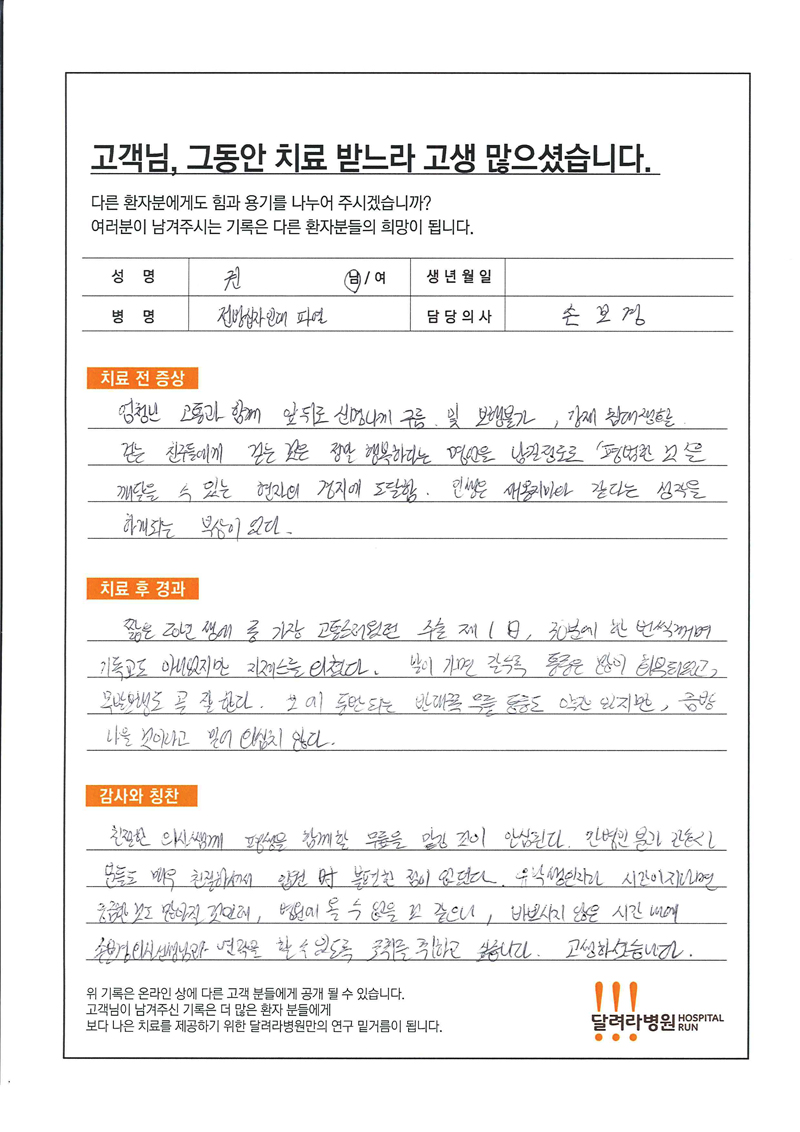 고객님, 그동안 치료 받느라 고생 많으셨습니다.
다른 환자분에게도 힘과 용기를 나누어 주시겠습니까?
여러분이 남겨주시는 기록은 다른 환자분들의 희망이 됩니다.
성 명 권 남/여 생년월일
병 명 전방십자인대 파열 담당의사 손보경
치료 전 증상
엄청난 고통과 함께 앞뒤로 신명나게 구름 및 보행불가, 강제 침대생활
걷는 친구들에게 걷는 것은 정말 행복하다는 명언을 남길정도로 '평범한 것'을
깨달을 수 있는 현자의 경지에 도달함. 인생은 새옹지마와 같다는 생각을
하게되는 부상이 었다.
치료 후 경과
짧은 20년 생애 중 가장 고통스러웠던 수술 제 1日, 30분에 한 번씩 깨며
기독교도 아니었지만 지져스를 외쳤다. 날이 가면 갈수록 통증은 많이 회복되었고,
무보행도 곧 잘 한다. 반대쪽 무릎 통증도 약간 있지만, 금방
나을 것이라고 믿어 의심치 않다.
감사와 칭찬
친절한 의사쌤께 평생을 함께할 무릎을 맡긴 것이 안심된다. 간병인 분과 간호사
분들도 매우 친절하셔서 입원 時 불편한 점이 없었다. 유학생인지라 시간이 지나면
궁금한 것도 많아질 것인데, 병원에 올 수 없을 것 같으니, 바쁘시지 않은 시간 내에
손보경 의사선생님과 연락을 할 수 있도록 조취를 취하고 싶습니다. 고생하셨습니다.
위 기록은 온라인 상에 다른 고객 분들에게 공개 될 수 있습니다.
고객님이 남겨주신 기록은 더 많은 환자 분들에게
보다 나은 치료를 제공하기 위한 달려라병원만의 연구 밑거름이 됩니다.
달려라병원 HOSPITAL RUN